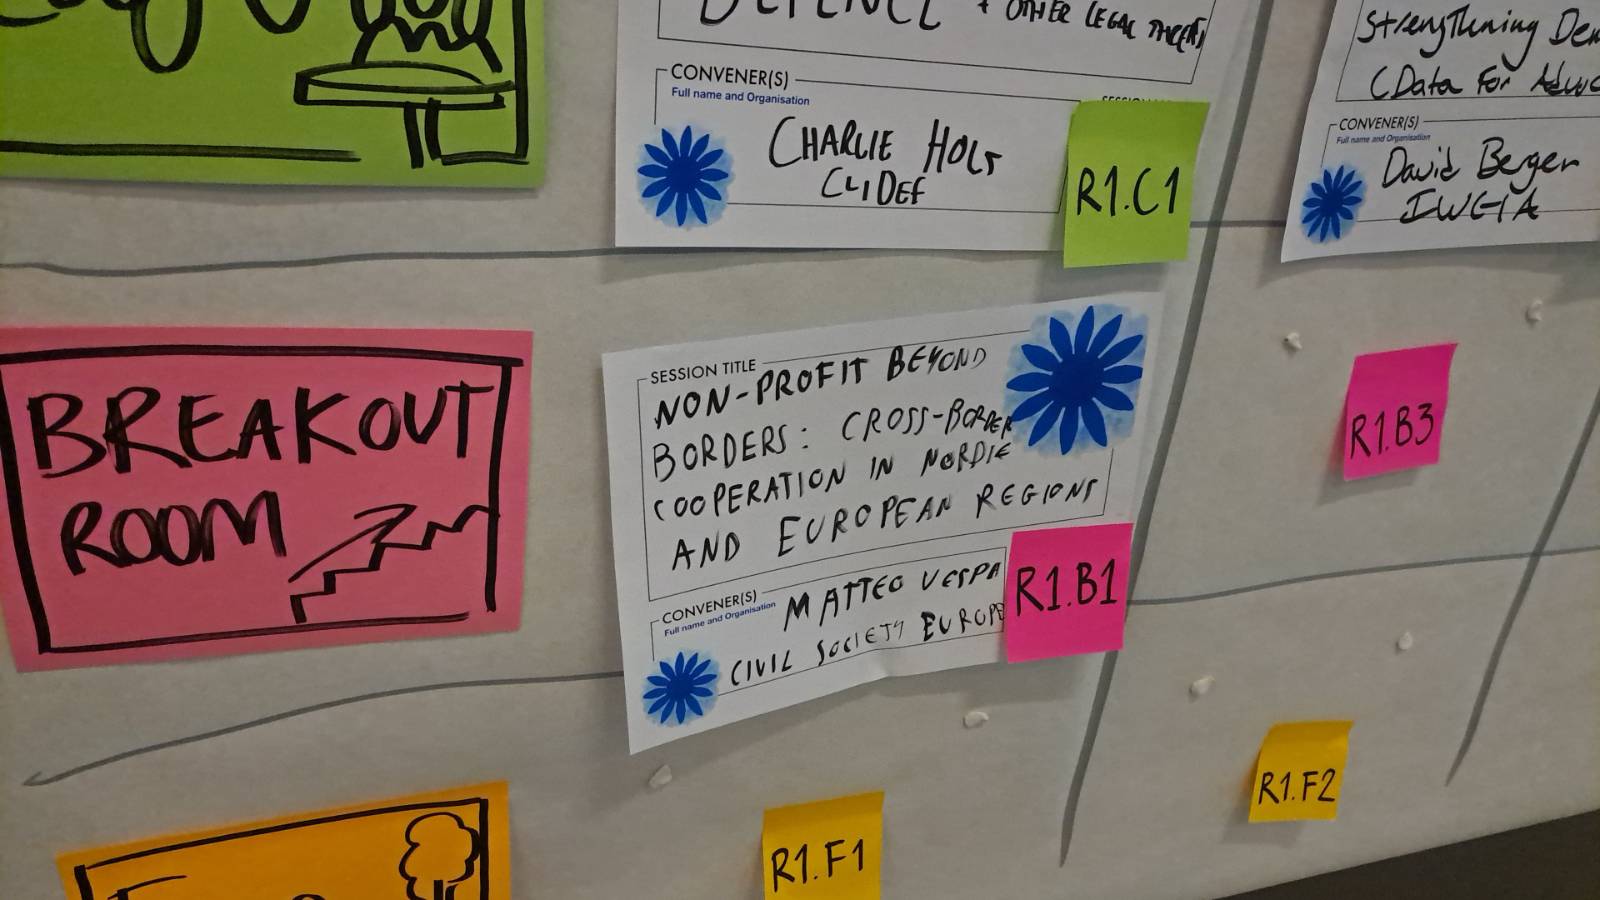 DEFENCE + OTHER LEGAL THREATS
CONVENER(S)
Full name and Organisation
CHARLIE HOLT
CLIDEF
R1.C1
Strengthening
(Data For
CONVENER(S)
Full name and Organisation
David Berger
IWGIA
BREAKOUT
ROOM
SESSION TITLE
NON-PROFIT BEYOND
BORDERS: CROSS-BORDER
COOPERATION IN NORDIC
AND EUROPEAN REGIONS
CONVENER(S)
Full name and Organisation
MATTEO VESPA
CIVIL SOCIETY EUROPE
R1.B1
R1.B3
R1.F1
R1.F2